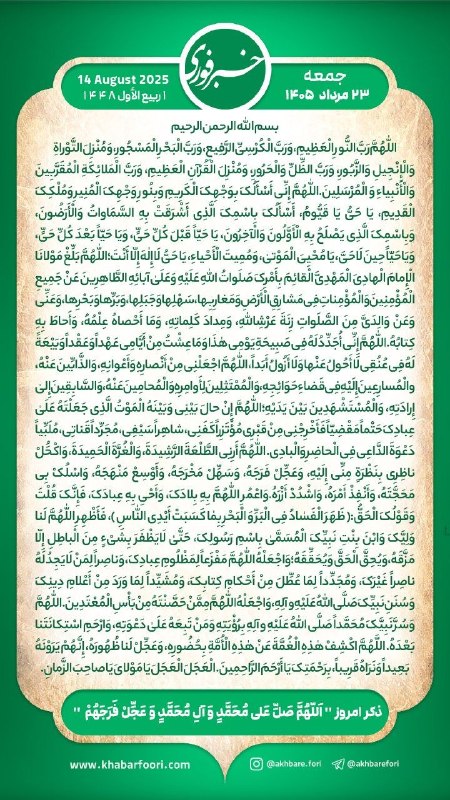 خبر فوری
جمعه
۲۳ مرداد ۱۴۰۵
14 August 2025
۱ ربیع الأول ۱۴۴۸
بسم الله الرحمن الرحیم
اللهُمَّ رَبَّ النُّورِ الْعَظِیمِ، وَرَبَّ الْكُرْسِیِّ الرَّفِیعِ، وَرَبَّ الْبَحْرِ الْمَسْجُورِ، وَمُنْزِلَ التَّوْراةِ
وَالْإِنْجِیلِ وَالزَّبُورِ، وَرَبَّ الظِّلِّ وَالْحَرُورِ، وَمُنْزِلَ الْقُرْآنِ الْعَظِیمِ، وَرَبَّ الْمَلائِكَةِ الْمُقَرَّبِینَ
وَالْأَنْبِیاءِ وَ الْمُرْسَلِینَ. اللّٰهُمَّ إِنِّی أَسْأَلُكَ بِوَجْهِكَ الْكَرِیمِ وَبِنُورِ وَجْهِكَ الْمُنِیرِ وَمُلْكِكَ
الْقَدِیمِ، یَا حَیُّ یَا قَیُّومُ، أَسْأَلُكَ بِاسْمِكَ الَّذِی أَشْرَقَتْ بِهِ السَّمَاوَاتُ وَالْأَرَضُونَ،
وَبِاسْمِكَ الَّذِی یَصْلَحُ بِهِ الْأَوَّلُونَ وَالْآخِرُونَ، یَا حَیّاً قَبْلَ كُلِّ حَیٍّ، وَیَا حَیّاً بَعْدَ كُلِّ حَیٍّ،
وَیَا حَیّاً حِینَ لَا حَیَّ، یَا مُحْیِیَ الْمَوْتىٰ، وَمُمِیتَ الْأَحْیاءِ، یَا حَیُّ لَا إِلٰهَ إِلّا أَنْتَ؛ اللّٰهُمَّ بَلِّغْ مَوْلانَا
الْإِمامَ الْهادِیَ الْمَهْدِیَّ الْقائِمَ بِأَمْرِكَ صَلَواتُ اللّٰهِ عَلَیْهِ وَعَلَىٰ آبائِهِ الطَّاهِرِینَ عَنْ جَمِیعِ
الْمُؤْمِنِینَ وَالْمُؤْمِناتِ فِی مَشارِقِ الْأَرْضِ وَمَغارِبِها، سَهْلِها وَجَبَلِها، وَبَرِّها وَبَحْرِها، وَعَنِّی
وَعَنْ وَالِدَیَّ مِنَ الصَّلَواتِ زِنَةَ عَرْشِ اللّٰهِ، وَمِدادَ كَلِماتِهِ، وَمَا أَحْصاهُ عِلْمُهُ، وَأَحاطَ بِهِ
كِتابُهُ. اللّٰهُمَّ إِنِّی أُجَدِّدُ لَهُ فِی صَبِیحَةِ یَوْمِی هٰذَا وَمَا عِشْتُ مِنْ أَیَّامِی عَهْداً وَعَقْداً وَبَیْعَةً
لَهُ فِی عُنُقِی لَا أَحُولُ عَنْها وَلَا أَزُولُ أَبَداً. اللّٰهُمَّ اجْعَلْنِی مِنْ أَنْصارِهِ وَأَعْوانِهِ، وَالذَّابِّینَ عَنْهُ،
وَالْمُسارِعِینَ إِلَیْهِ فِی قَضاءِ حَوَائِجِهِ، وَالْمُمْتَثِلِینَ لِأَوامِرِهِ وَالْمُحامِینَ عَنْهُ، وَالسَّابِقِینَ إِلىٰ
إِرادَتِهِ، وَالْمُسْتَشْهَدِینَ بَیْنَ یَدَیْهِ؛ اللّٰهُمَّ إِنْ حالَ بَیْنِی وَبَیْنَهُ الْمَوْتُ الَّذِی جَعَلْتَهُ عَلَىٰ
عِبادِكَ حَتْماً مَقْضِیّاً فَأَخْرِجْنِی مِنْ قَبْرِی مُؤْتَزِراً كَفَنِی، شاهِراً سَیْفِی، مُجَرِّداً قَناتِی، مُلَبِّیاً
دَعْوَةَ الدَّاعِی فِی الْحاضِرِ وَالْبادِی. اللّٰهُمَّ أَرِنِی الطَّلْعَةَ الرَّشِیدَةَ، وَالْغُرَّةَ الْحَمِیدَةَ، وَاكْحُلْ
ناظِرِی بِنَظْرَةٍ مِنِّی إِلَیْهِ، وَعَجِّلْ فَرَجَهُ، وَسَهِّلْ مَخْرَجَهُ، وَأَوْسِعْ مَنْهَجَهُ، وَاسْلُكْ بِی
مَحَجَّتَهُ، وَأَنْفِذْ أَمْرَهُ، وَاشْدُدْ أَزْرَهُ، وَاعْمُرِ اللّٰهُمَّ بِهِ بِلادَكَ، وَأَحْیِ بِهِ عِبادَكَ، فَإِنَّكَ قُلْتَ
وَقَوْلُكَ الْحَقُّ: (ظَهَرَ الْفَسَادُ فِی الْبَرِّ وَ الْبَحْرِ بِمَا كَسَبَتْ أَیْدِی النَّاسِ)، فَأَظْهِرِ اللّٰهُمَّ لَنا
وَلِیَّكَ وَابْنَ بِنْتِ نَبِیِّكَ الْمُسَمَّىٰ بِاسْمِ رَسُولِكَ، حَتَّىٰ لَا یَظْفَرَ بِشَیْءٍ مِنَ الْباطِلِ إِلّا
مَزَّقَهُ، وَیُحِقَّ الْحَقَّ وَیُحَقِّقَهُ؛ وَاجْعَلْهُ اللّٰهُمَّ مَفْزَعاً لِمَظْلُومِ عِبادِكَ، وَناصِراً لِمَنْ لَا یَجِدُ لَهُ
ناصِراً غَیْرَكَ، وَمُجَدِّداً لِمَا عُطِّلَ مِنْ أَحْكامِ كِتابِكَ، وَمُشَیِّداً لِمَا وَرَدَ مِنْ أَعْلامِ دِینِكَ
وَسُنَنِ نَبِیِّكَ صَلَّى اللّٰهُ عَلَیْهِ وَآلِهِ، وَاجْعَلْهُ اللّٰهُمَّ مِمَّنْ حَصَّنْتَهُ مِنْ بَأْسِ الْمُعْتَدِینَ. اللّٰهُمَّ
وَسُرَّ نَبِیَّكَ مُحَمَّداً صَلَّى اللّٰهُ عَلَیْهِ وَآلِهِ بِرُؤْیَتِهِ وَمَنْ تَبِعَهُ عَلَىٰ دَعْوَتِهِ، وَارْحَمِ اسْتِكانَتَنا
بَعْدَهُ. اللّٰهُمَّ اكْشِفْ هٰذِهِ الْغُمَّةَ عَنْ هٰذِهِ الْأُمَّةِ بِحُضُورِهِ، وَعَجِّلْ لَنا ظُهُورَهُ، إِنَّهُمْ یَرَوْنَهُ
بَعِیداً وَنَرَاهُ قَرِیباً، بِرَحْمَتِكَ یَا أَرْحَمَ الرَّاحِمِینَ. الْعَجَلَ الْعَجَلَ یَا مَوْلایَ یَا صاحِبَ الزَّمانِ.
ذکر امروز " اَللّهُمَّ صَلِّ عَلى مُحَمَّدٍ وَ آلِ مُحَمَّدٍ وَ عَجِّلْ فَرَجَهُمْ "
www.khabarfoori.com
@akhbare.fori
@akhbarefori